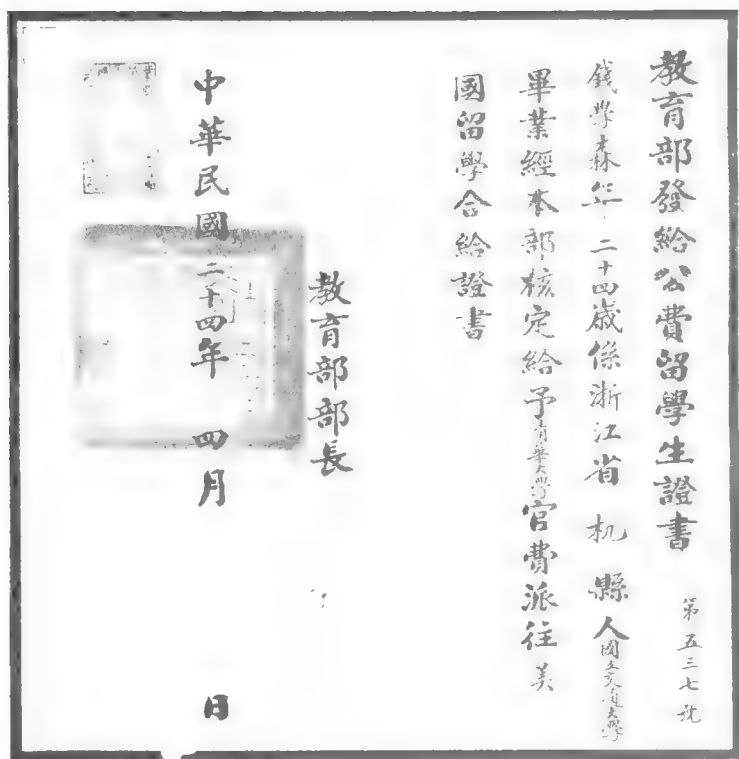 教育部發給公費留學生證書
第五三七號
錢學森年二十四歲係浙江省杭縣人國立交通大學
畢業經本部核定給予清華大學官費派往美
國留學合給證書
教育部部長
中華民國二十四年 四月 日